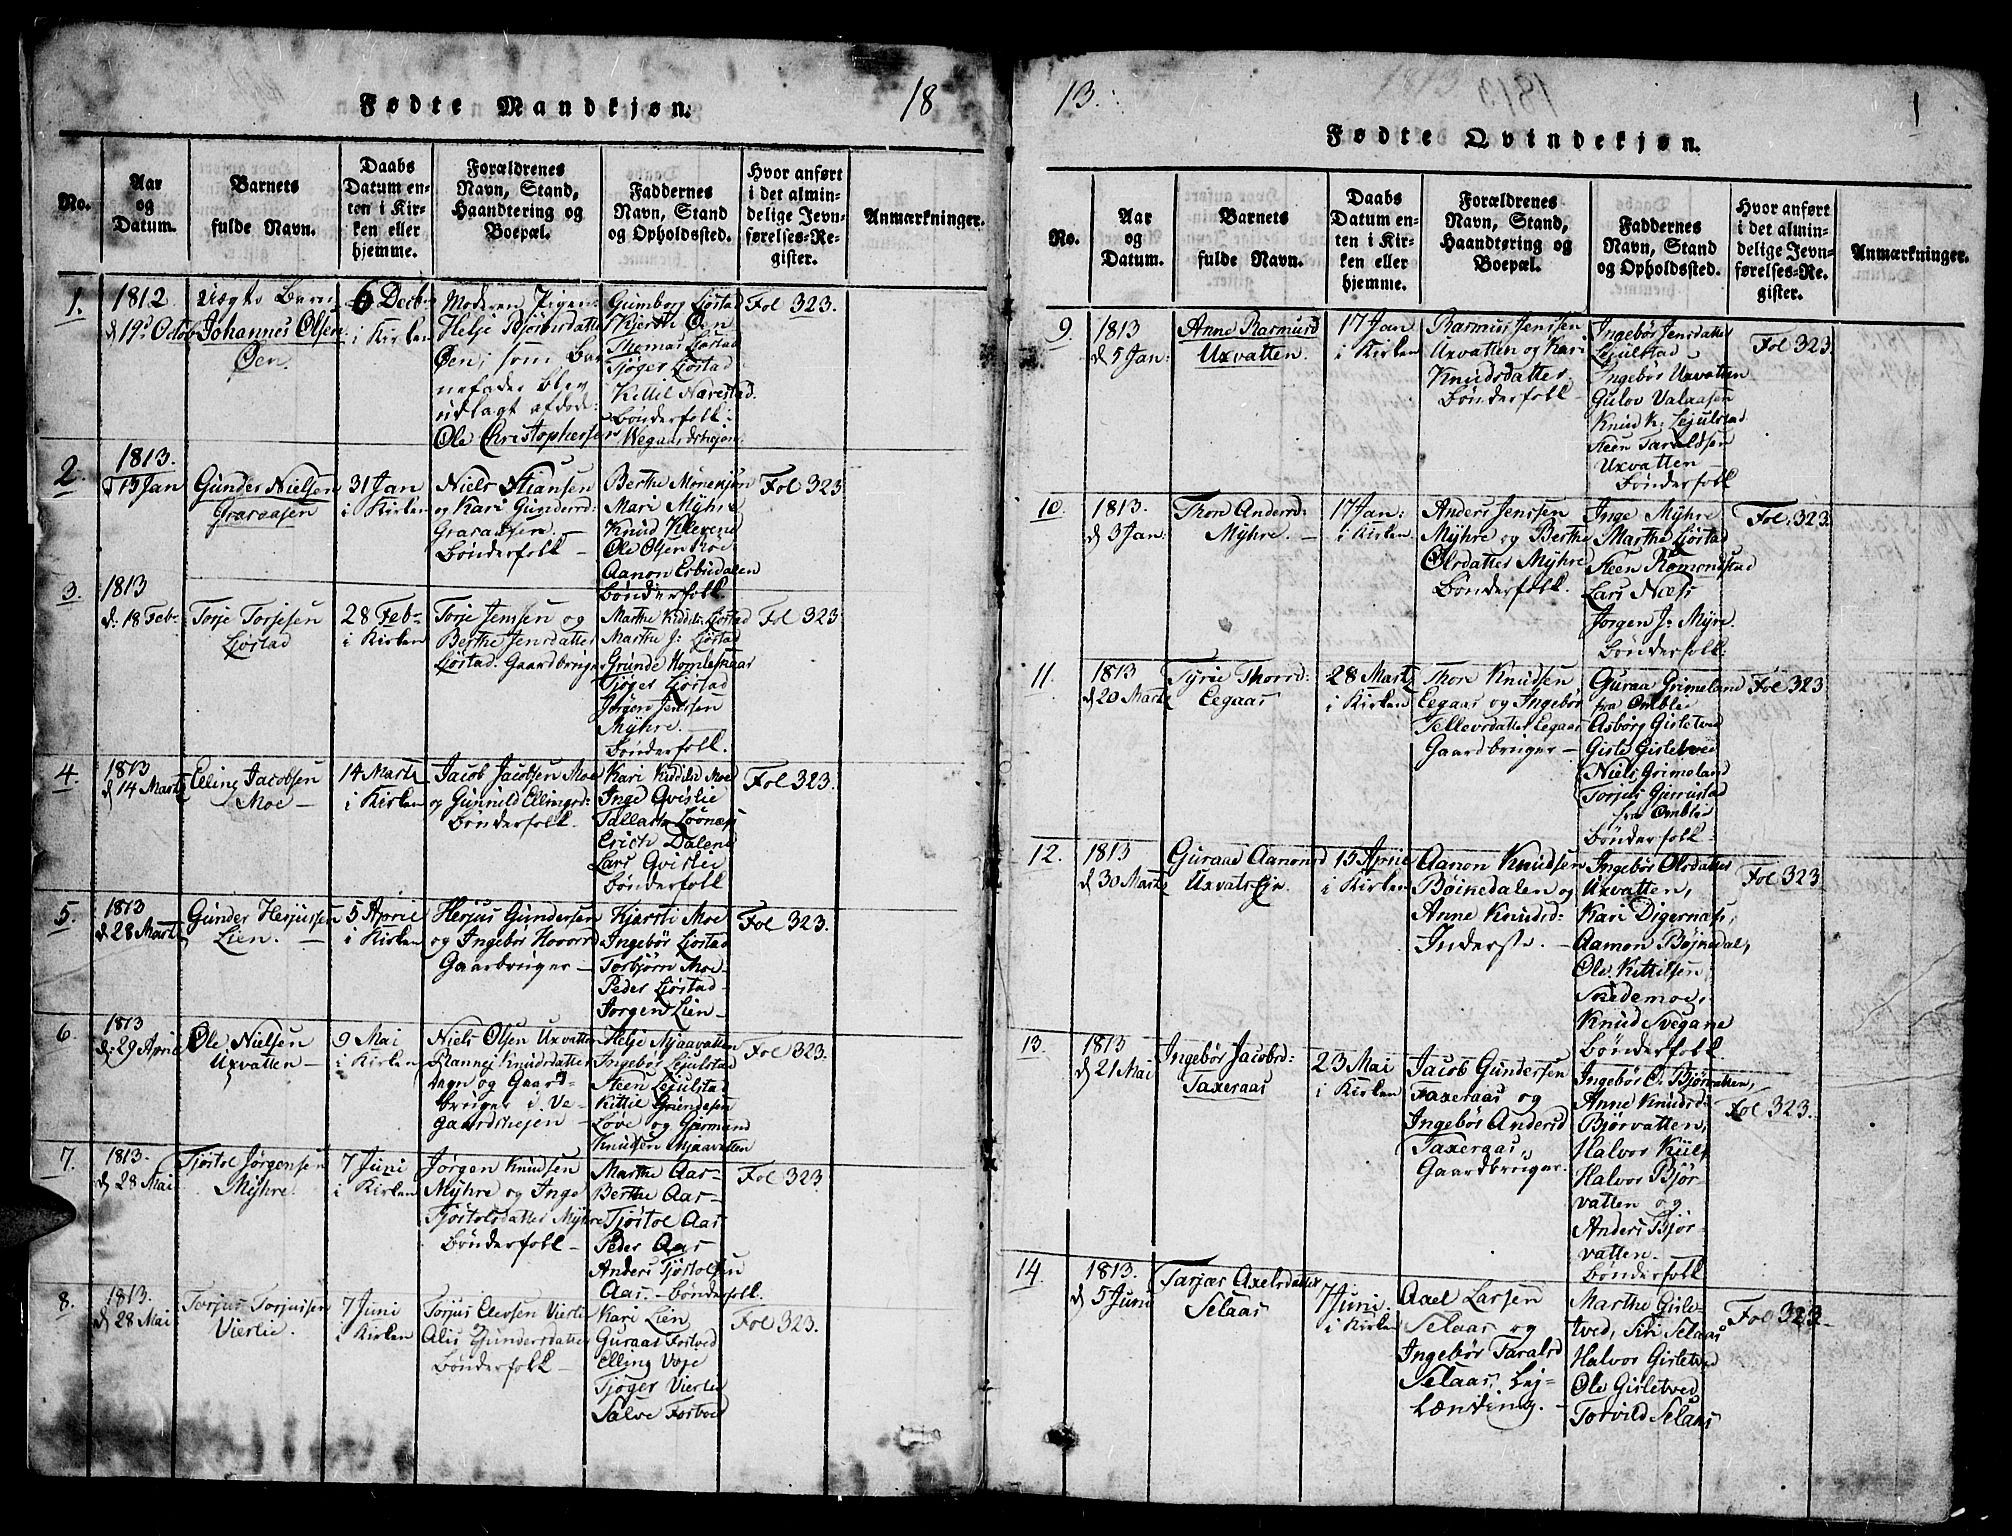 Fødte Mandkjøn.
18
No.
Aar
og
Datum.
Barnets
fulde Navn.
Daabs
Datum en-
ten i Kir-
ken eller
hjemme.
Forældrenes
Navn, Stand,
Haandtering og
Boepæl.
Faddernes
Navn, Stand
og Opholdssted.
Hvor anført
i det almin-
delige Jevn-
førelses-Re-
gister.
Anmærkninger.
1.
1812
d 19d Octob
Uægte Barn
Johannes Olsen
Øen.
6 Decbr
i Kirken
Moderen Pigen
Helje Bjørnsdatter
Øen, som Bar
nefader blev
udlagt afdøde:
Ole Christophersen
Gumborg Ljøstad
Kjersti Øen
Thomas Ljøstad
Tjøger Ljøstad
Kittil Nærestad
Bønderfolk:
Wegaardshejen:
Fol 323.
2.
1813.
d 13 Jan
Gunder Nielsen
Graraasen
31 Jan
i Kirken
Niels Stiansen
og Kari Gundersd:
Graraasen
Bønderfolk –
Berthe Monensøn
Mari Myhre
Knud Klevene
Ole Olsen Moe
Aanon Esbudalen
Bønderfolk
Fol 323
3.
1813
d: 18 Feb:
Torje Torjesen
Ljøstad
28 Feb:
i Kirken
Torje Jenssen og
Berthe Jensdatter
Ljøstad. Gaardbruger
Marthe Kiddils: Ljøstad
Marthe J: Ljøstad
Grunde Homleknaar
Tjøger Ljøstad
Jørgen Jenssen
Myhre.
Bønderfolk.
Fol 323
4.
1813
d 14 Marts
Elling Jacobsen
Moe –
14 Marts
i Kirken
Jacob Jacobsen Moe
og Gunnild Ellingsd:
Bønderfolk.
Kari Kiddilsd Moe
Inge Qvislie
Tallach Løvnæs
Erich Dalene
Lars Qvislie
Bønderfolk
Fol 323.
5.
1813
d: 28 Marts
Gunder Herjussen
Lien. –
5 April
i Kirken
Herjus Gundersen
og Ingebør Hovorsd
Gaarbruger –
Kjersti Moe
Ingebør Ljøstad
Torbjørn Moe
Peder Ljøstad
Jørgen Lien –
Fol 323.
6.
1813
d: 29 April
Ole Nielsen
Uxvatten –
9 Mai
i Kirken
Niels Olsen Uxvatten
Rannej Knudsdatter
Gaard-
bruger i Ve-
gaardshejen –
Helje Mjaavatten
Ingebør Lejulstad
Steen Lejulstad
Kittil Grundesen
Løve og Gjermund
Knudsen Mjaavatten
Fol 323.
7.
1813.
d 28 Mai
Tjøstol Jørgensen
Myhre.
7 Juni
i Kirken
Jørgen Knudsen
Myhre og Inge
Tjøstolsdatter Myhre
Bønderfolk –
Marthe Aas –
Berthe Aas –
Tjøstol Aas
Peder Aas
Anders Tjøstolsen
Aas. – Bønderfolk.
Fol 323.
8.
1813.
d 28 Mai
Torjus Torjussen
Vierlie.
7 Juni
i Kirken
Torjus Olevsen Vierlie
Alis Gundersdatter
Bønderfolk –
Kari Lien
Guraas Fostved
Elling Voje
Tjøger Vierlie
Salve Fostved
Fol 323.
13.
1
Fødte Qvindekjøn.
No.
Aar
og
Datum.
Barnets
fulde Navn.
Daabs
Datum en-
ten i Kir-
ken eller
hjemme.
Forældrenes
Navn, Stand,
Haandtøring og
Boepæl.
Faddernes
Navn, Stand
og Opholdssted.
Hvor anført
i det almin-
delige Jevn-
førelses-Re-
gister.
Anmærkninger.
9.
1813
d 5 Jan:
Anne Rasmusd
Uxvatten.
17 Jan
i Kirken
Rasmus Jenssen
Uxvatten og Kari
Knudsdatter.
Bønderfolk –
Ingebør Jensdatter
Lejulstad
Ingebør Uxvatten
Gulov Valaasen
Knud K: Lejulstad
Steen Taraldsen
Uxvatten
Bønderfolk
Fol 323.
10.
1813.
d 3 Jan:
Thore Andersd:
Myhre. –
17 Jan:
i Kirken
Anders Jenssen
Myhre og Berthe
Olsdatter Myhre
Bønderfolk.
Inge Myhre
Marthe Ljøstad
Steen Romondstad
Lars Næss
Jørgen J: Myre.
Bønderfolk:
Fol: 323.
11.
1813
d 20 Marts
Tyrie Thorsd:
Eegaas
28 Marts
i Kirken
Thor Knudsen
Eegaas og Ingebør
Tellevsdatter Eegaas
Gaardbruger –
Guraa Grimeland
fra Omblie
Asborg Gisletved
Gisle Gisletved
Niels Grimeland
Torjus Gjerustad
fra Omblie
Bønderfolk:
Fol 323
12.
1813
d 30 Marts
Guraa Aanonsd
Uxvatsejn.
15 April
i Kirken
Aanon Knudsen
Bøjkedalen og
Anne Knudsd:
Inderste. –
Ingebør Olsdatter
Uxvatten,
Kari Digernæs,
Aamon Bøjkedal,
Ole Kittilsen
Skedemoe,
Knud Svegane
Bønderfolk.
Fol 323
13.
1813
d 21 Mai
Ingebør Jacobsd:
Faxeraas
23 Mai
i Kirken
Jacob Gundersen
Faxeraas og
Ingebør Andersd
Faxeraas,
Gaardbruger.
Ingebør O. Bjørvatten,
Anne Knudsd:
Bjørvatten,
Halvor Kulf
Halvor Bjør
vatten og
Anders Bjør-
vatten.
Bønderfolk
Fol 323.
14.
1813.
d 5 Juni
Tarjær Axelsdatter
Selaas
7 Juni
i Kirken
Axel Larsen
Selaas og
Ingebør Taralsd
Selaas. Lej-
lænding. –
Marthe Gisle-
tved, Siri Selaas
Halvor Gisletved
Ole Gisletved
Torvild Selaas
Fol 323.